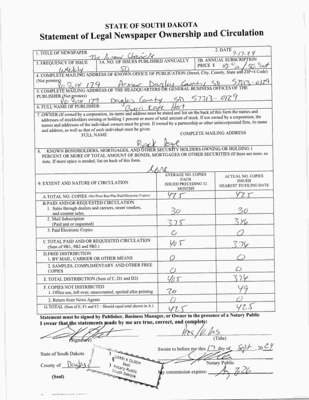 STATE OF SOUTH DAKOTA
Statement of Legal Newspaper Ownership and Circulation
1. TITLE OF NEWSPAPER
2. DATE
3. FREQUENCY OF ISSUE
Weekly
3A. NO. OF ISSUES PUBLISHED ANNUALLY
3B. ANNUAL SUBSCRIPTION
PRICE $
4. COMPLETE MAILING ADDRESS OF KNOWN OFFICE OF PUBLICATION (Street, City, County, State and ZIP+4 Code)
(Not printers)
Box 129 Douglas County SD 57313-0129
5. COMPLETE MAILING ADDRESS OF THE HEADQUARTERS OR GENERAL BUSINESS OFFICES OF THE
PUBLISHER (Not printers)
PO Box 129 Douglas County SD 57313-0129
6. FULL NAME OF PUBLISHER:
7. OWNER (If owned by a corporation, its name and address must be stated and list on the back of this form the names and
addresses of stockholders owning or holding 1 percent or more of total amount of stock. If not owned by a corporation, the
names and addresses of the individual owners must be given. If owned by a partnership or other unincorporated firm, its name
and address, as well as that of each individual must be given.
FULL NAME
COMPLETE MAILING ADDRESS
8. KNOWN BONDHOLDERS, MORTGAGES, AND OTHER SECURITY HOLDERS OWNING OR HOLDING 1
PERCENT OR MORE OF TOTAL AMOUNT OF BONDS, MORTGAGES OR OTHER SECURITIES (If there are none, so
state. If more space is needed, list on back of this form.
None
9. EXTENT AND NATURE OF CIRCULATION
AVERAGE NO. COPIES
EACH
ISSUED PRECEDING 12
MONTHS
ACTUAL NO. COPIES
ISSUED
NEAREST TO FILING DATE
A. TOTAL NO. COPIES
425
425
B. PAID AND/OR REQUESTED CIRCULATION
1. Sales through dealers and carriers, street vendors,
and counter sales.
30
30
2. Mail Subscription
(Paid and/or requested)
375
346
3. Paid Electronic Copies
0
0
C. TOTAL PAID AND/OR REQUESTED CIRCULATION
(Sum of 9B1, 9B2 and 9B3)
405
376
D. FREE DISTRIBUTION
1. BY MAIL, CARRIER OR OTHER MEANS
0
0
2. SAMPLES, COMPLIMENTARY AND OTHER FREE
COPIES
0
0
E. TOTAL DISTRIBUTION (Sum of C, D1 and D2)
405
376
F. COPIES NOT DISTRIBUTED
1. Office use, left over, unaccounted, spoiled after printing
20
49
2. Return from News Agents
0
0
G. TOTAL
425
425
Statement must be signed by Publisher, Business Manager, or Owner in the presence of a Notary Public
I swear that the statements made by me are true, correct, and complete:
(Signature)
(Title)
State of South Dakota
Sworn to before me this 17 day of Sept 2024
County of Douglas
Notary Public
(Seal)
commission expires: